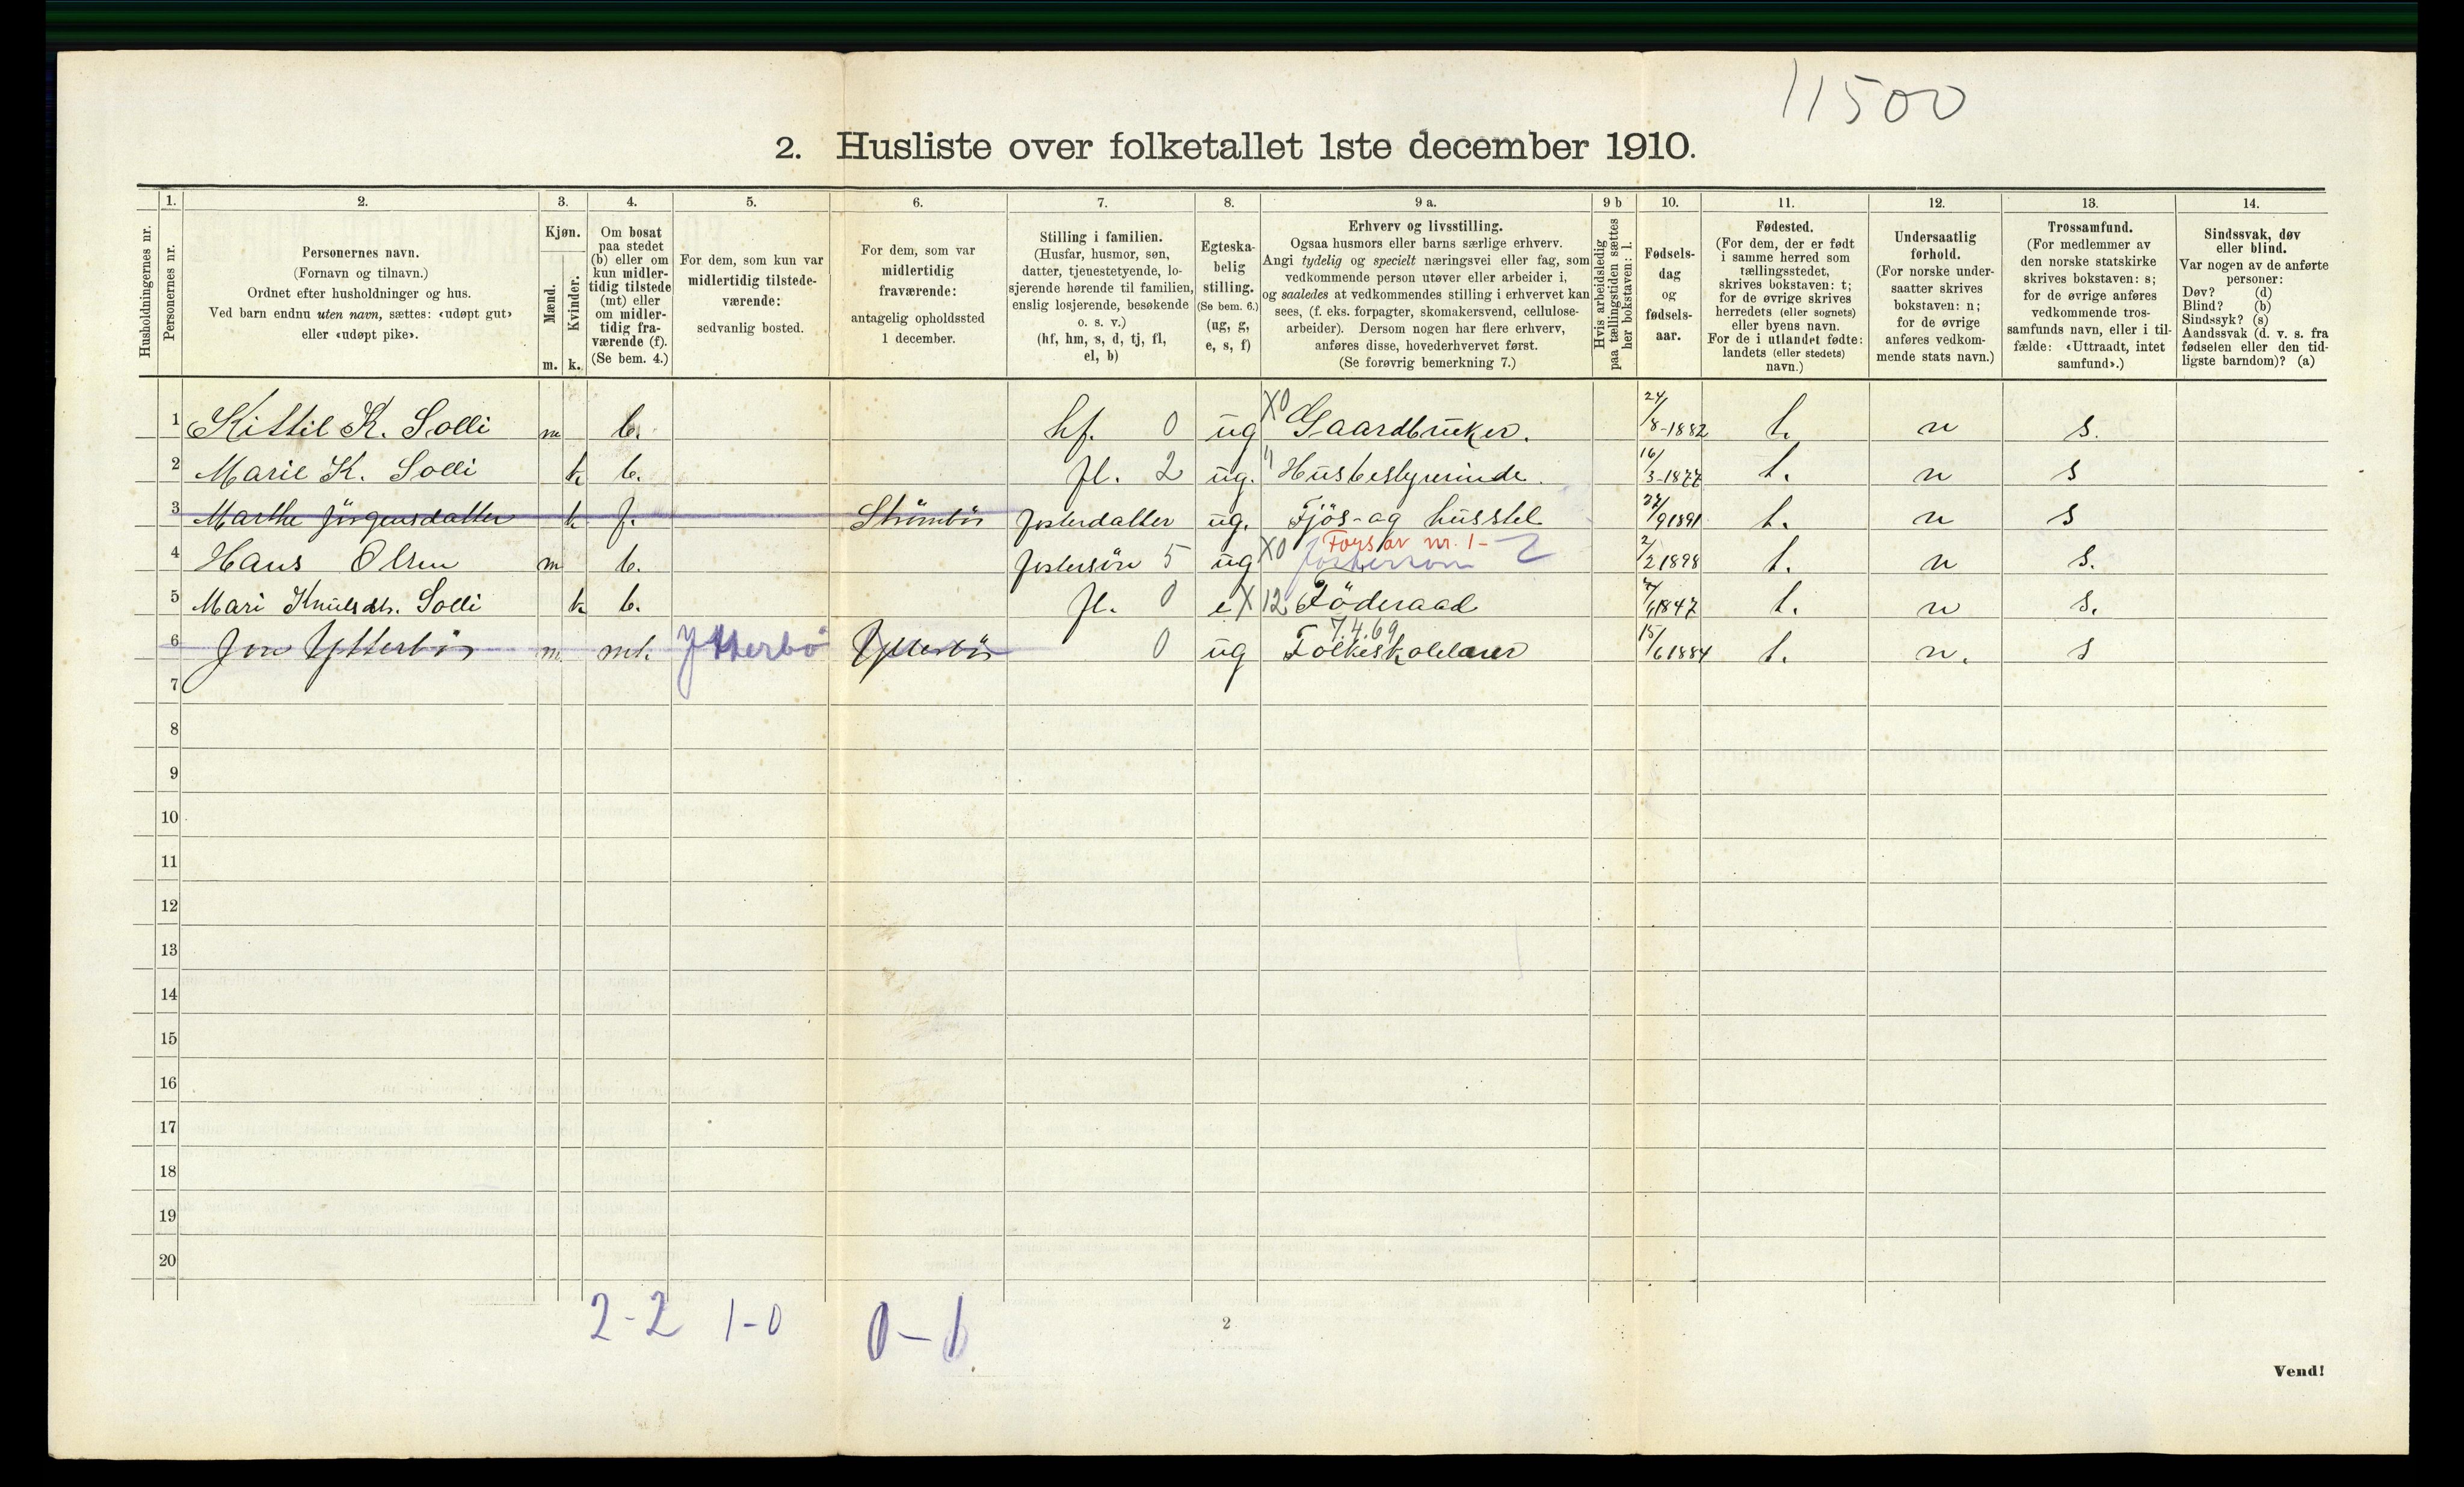 11500
2. Husliste over folketallet 1ste december 1910.
Husholdningernes nr.
1. Personernes nr.
2. Personernes navn.
(Fornavn og tilnavn.)
Ordnet efter husholdninger og hus.
Ved barn endnu uten navn, sættes: «udøpt gut»
eller «udøpt pike».
3. Kjøn.
Mænd. Kvinder.
m. k.
4. Om bosat
paa stedet
(b) eller om
kun midler-
tidig tilstede
(mt) eller
om midler-
tidig fra-
værende (f).
(Se bem. 4.)
5. For dem, som kun var
midlertidig tilstede-
værende:
sedvanlig bosted.
6. For dem, som var
midlertidig
fraværende:
antagelig opholdssted
1 december.
7. Stilling i familien.
(Husfar, husmor, søn,
datter, tjenestetyende, lo-
sjerende hørende til familien,
enslig losjerende, besøkende
o. s. v.)
(hf, hm, s, d, tj, fl,
el, b)
8. Egteska-
belig
stilling.
(Se bem. 6.)
(ug, g,
e, s, f)
9 a. Erhverv og livsstilling.
Ogsaa husmors eller barns særlige erhverv.
Angi tydelig og specielt næringsvei eller fag, som
vedkommende person utøver eller arbeider i,
og saaledes at vedkommendes stilling i erhvervet kan
sees, (f. eks. forpagter, skomakersvend, cellulose-
arbeider). Dersom nogen har flere erhverv,
anføres disse, hovederhvervet først.
(Se forøvrig bemerkning 7.)
9 b Hvis arbeidsledig
paa tællingstiden sættes
her bokstaven: l.
10. Fødsels-
dag
og
fødsels-
aar.
11. Fødested.
(For dem, der er født
i samme herred som
tællingsstedet,
skrives bokstaven: t;
for de øvrige skrives
herredets (eller sognets)
eller byens navn.
For de i utlandet fødte:
landets (eller stedets)
navn.)
12. Undersaatlig
forhold.
(For norske under-
saatter skrives
bokstaven: n;
for de øvrige
anføres vedkom-
mende stats navn.)
13. Trossamfund.
(For medlemmer av
den norske statskirke
skrives bokstaven: s;
for de øvrige anføres
vedkommende tros-
samfunds navn, eller i til-
fælde: «Uttraadt, intet
samfund».)
14. Sindssvak, døv
eller blind.
Var nogen av de anførte
personer:
Døv? (d)
Blind? (b)
Sindssyk? (s)
Aandssvak (d. v. s. fra
fødselen eller den tid-
ligste barndom)? (a)
1 Kittil K. Solli m b. hf. 0 ug X0 Gaardbruker. 24/8-1882 t. n s.
2 Marie K. Solli k b. fl. 2 ug. " Husbestyrerinde. 16/3-1877 t. n s
3 Marthe Jörgensdatter k f. Strömbös fosterdatter ug. Fjös- og husstel 27/9 1891 t. n s
4 Hans Olsen m b. fostersön 5 ug X0 Fors. av nr. 1- fosterson 2/2 1898 t. n s.
5 Mari Knutsdtr. Solli k b. fl. 0 e X 12 Föderaad 7/6 1847 t. n s.
7.4.69
6 Jon Ytterbös m. mt. Ytterbö Ytterbös 0 ug Folkeskolelærer 15/6 1884 t. n. s
7
8
9
10
11
12
13
14
15
16
17
18
19
20
2-2 1-0 0-1
2
Vend!